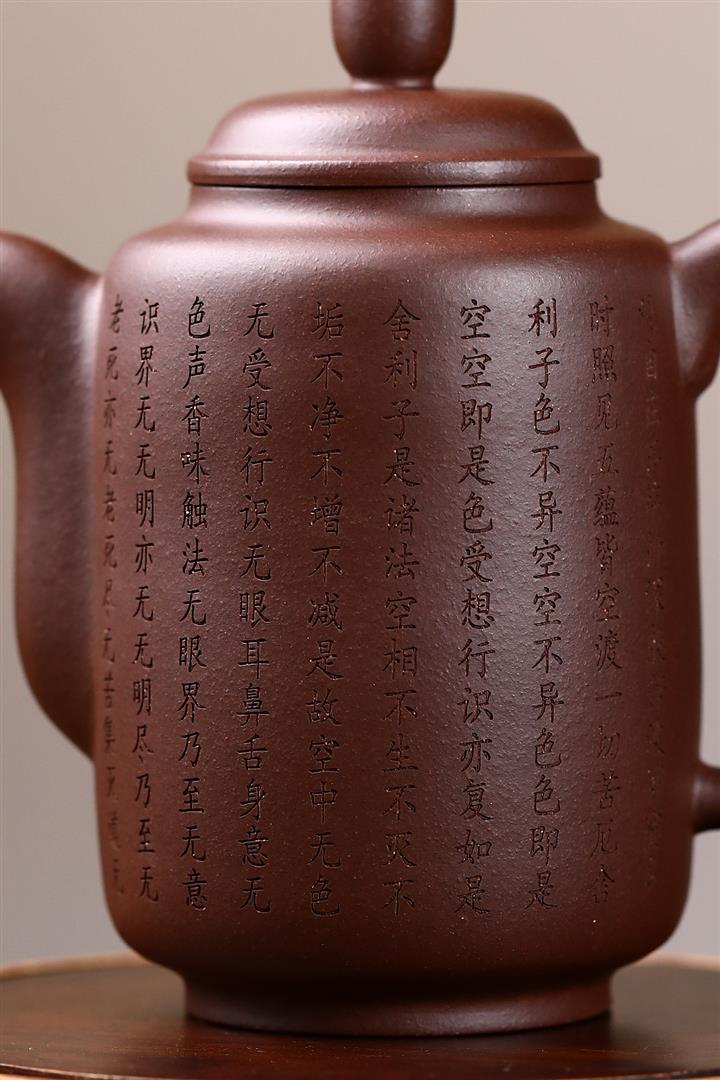 时照见五蕴皆空渡一切苦厄舍
利子色不异空空不异色色即是
空空即是色受想行识亦复如是
舍利子是诸法空相不生不灭不
垢不净不增不减是故空中无色
无受想行识无眼耳鼻舌身意无
色声香味触法无眼界乃至无意
识界无无明亦无无明尽乃至无
老死亦无老死尽无苦集灭道无